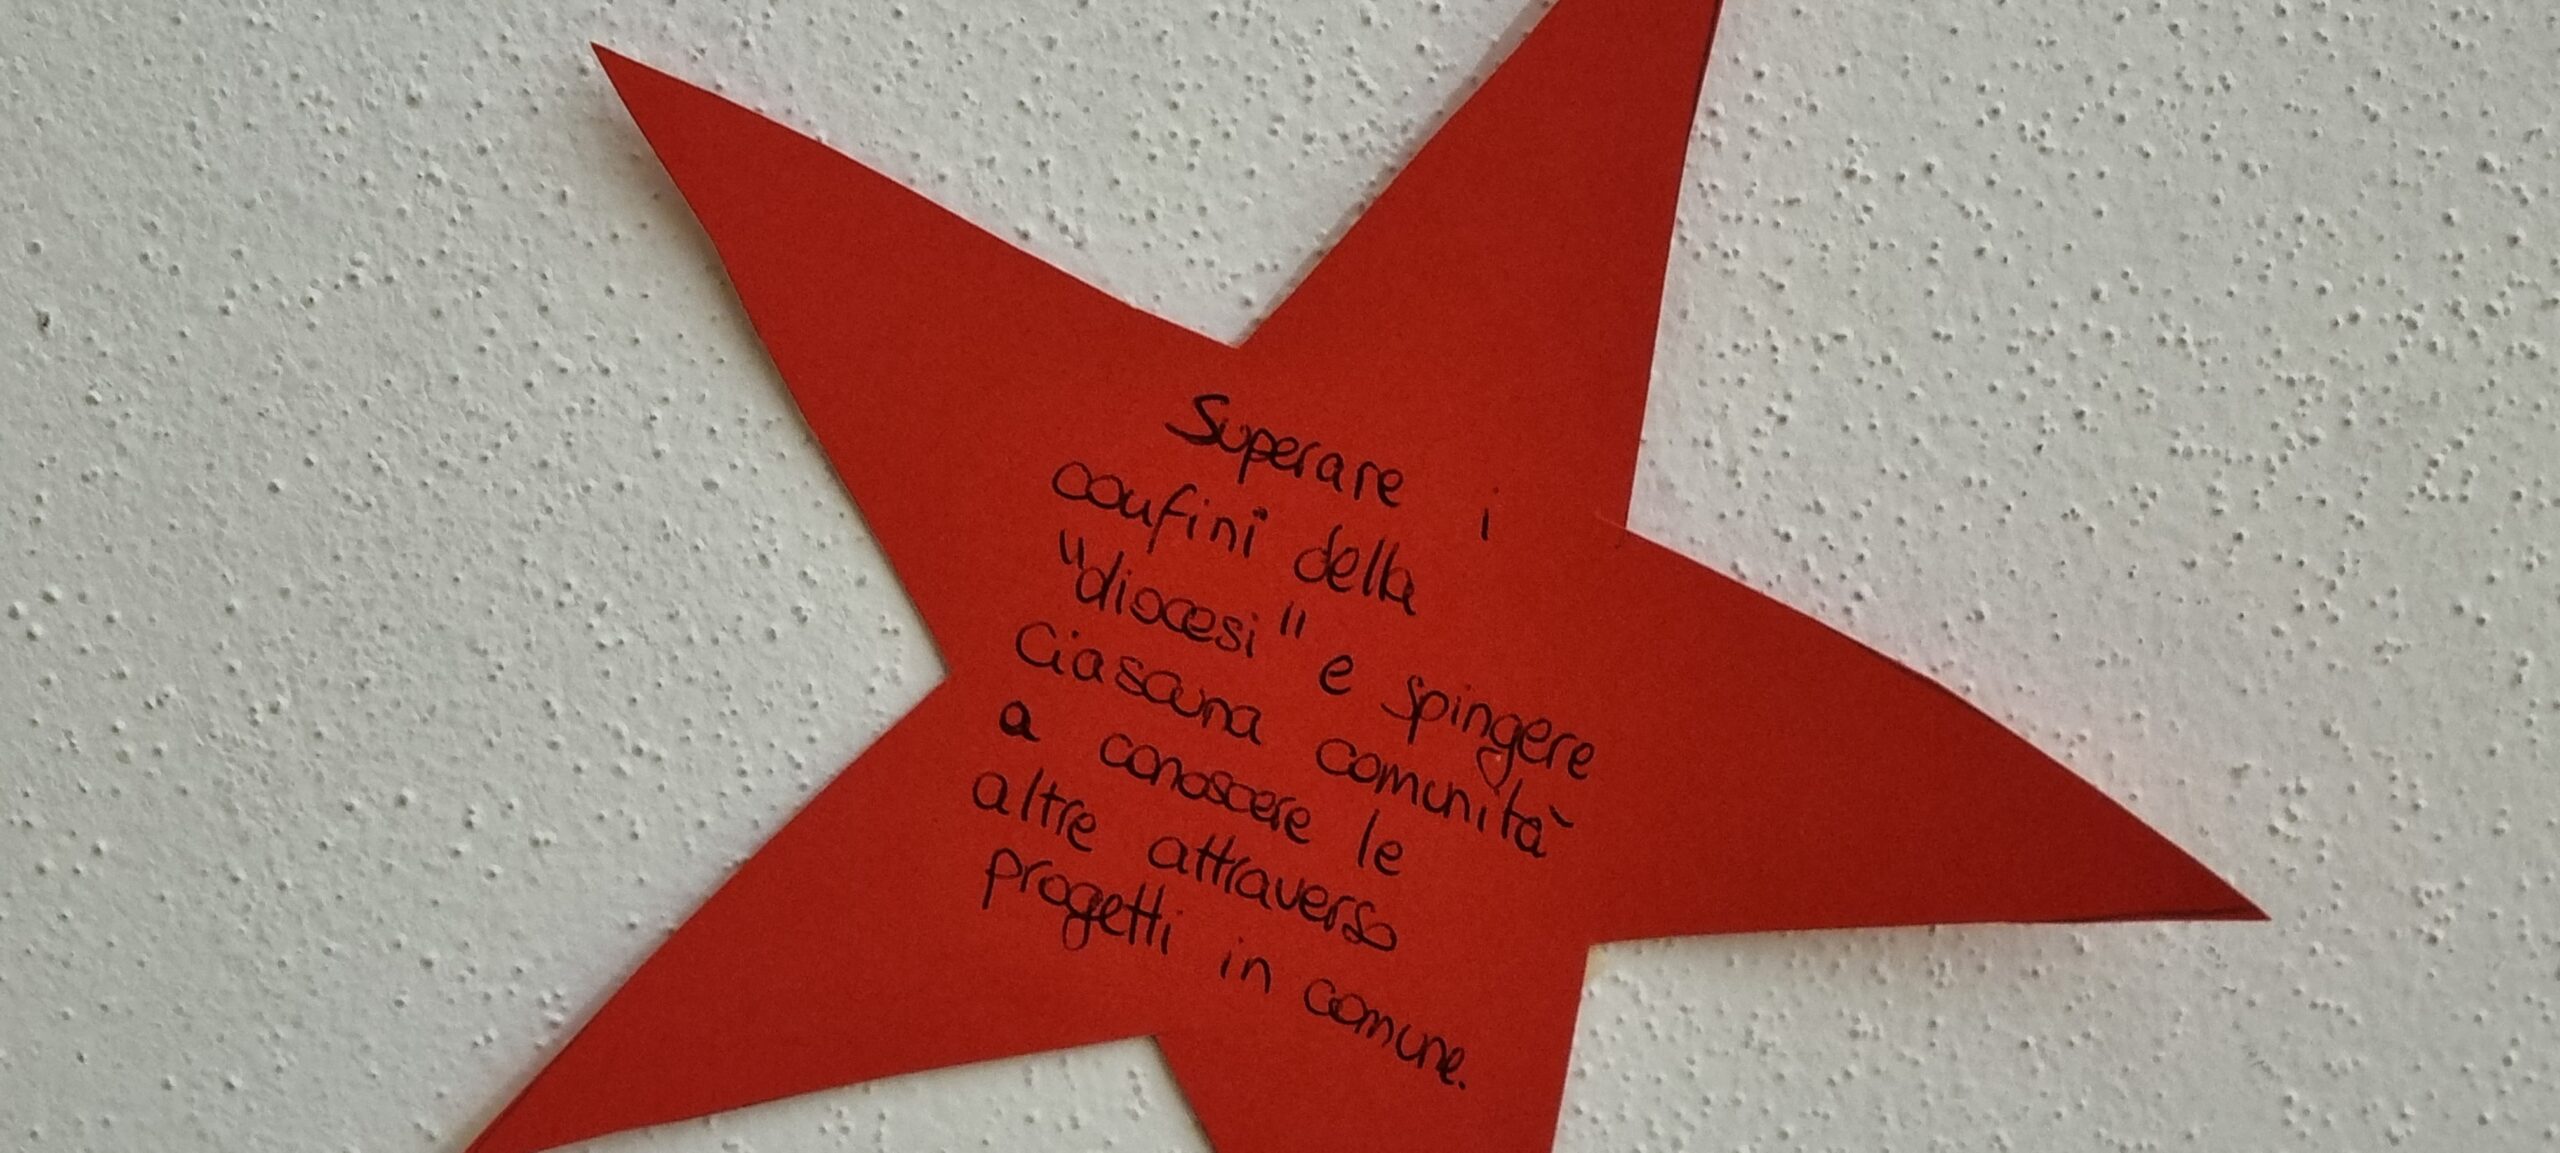 Superare i
confini della
"diocesi" e spingere
Ciascuna comunità
a conoscere le
altre attraverso
progetti in comune.